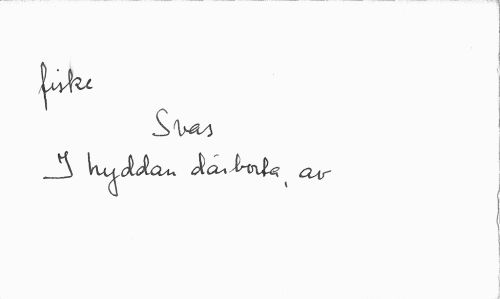 fiske
Svas
I hyddan därborta, av